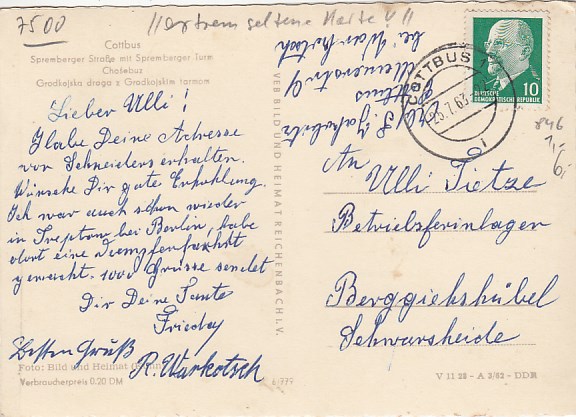 7500
"extrem seltene Karte!!"
Cottbus
Spremberger Straße mit Spremberger Turm
Chośebuz
Grodkojska droga z Grodkojskim tormom
Lieber Ulli!
Habe Deine Adresse
von Schneiders erhalten.
Wünsche Dir gute Erhohlung.
Ich war auch schon wieder
in Treptow bei Berlin, habe
dort eine Dampferfahrt
gemacht. 1000 Grüsse sendet
Dir Deine Tante
Friedey
Besten Gruß
R. Warkotsch
Foto: Bild und Heimat
Verbraucherpreis 0.20 DM
6/779
VEB BILD UND HEIMAT REICHENBACH I. V.
bei Warkotsch
Cottbus
COTTBUS 1
25.7.63
DEUTSCHE
DEMOKRATISCHE REPUBLIK
10
846
1,-
6,-
An
Ulli Tietze
Betriebsferienlager
Berggießhübel
Schwarzheide
V 11 28 - A 3/62 - DDR